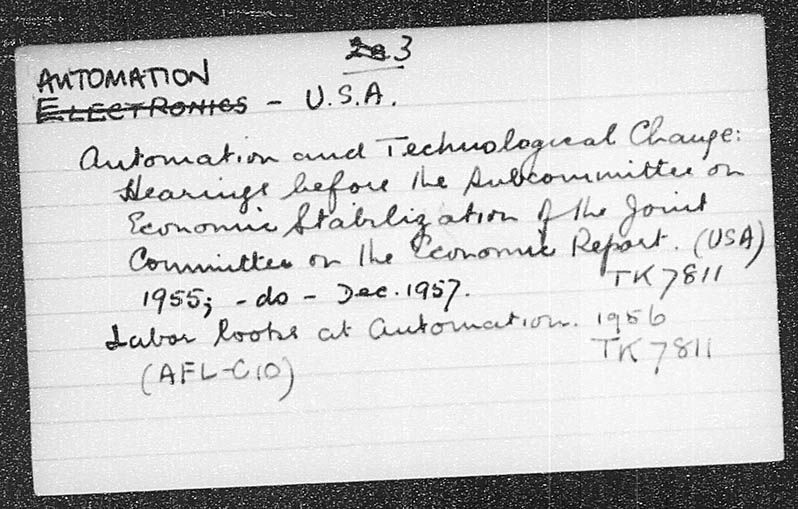 3
AUTOMATION
ELECTRONICS - U.S.A.
Automation and Technological Change:
Hearings before the Subcommittee on
Economic Stabilization of the Joint
Committee on the Economic Report. (USA)
1955; - do - Dec. 1957. TK 7811
Labor looks at Automation. 1956
(AFL-CIO) TK 7811